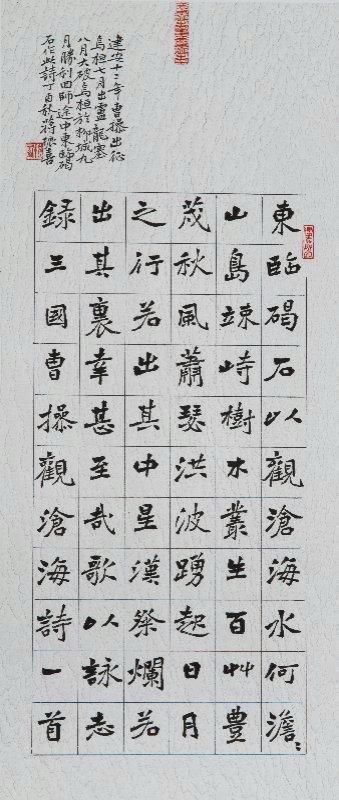 東臨碣石以觀滄海水何澹〻
山島竦峙樹木叢生百艸豊
茂秋風蕭瑟洪波踴起日月
之行若出其中星漢粲爛若
出其裏幸甚至哉歌以詠志
録三國曹操觀滄海詩一首
建安十二年曹操出征
烏桓七月出盧龍塞
八月大破烏桓於柳城九
月勝利回師途中東臨碣
石作此詩丁酉秋蔣振喜